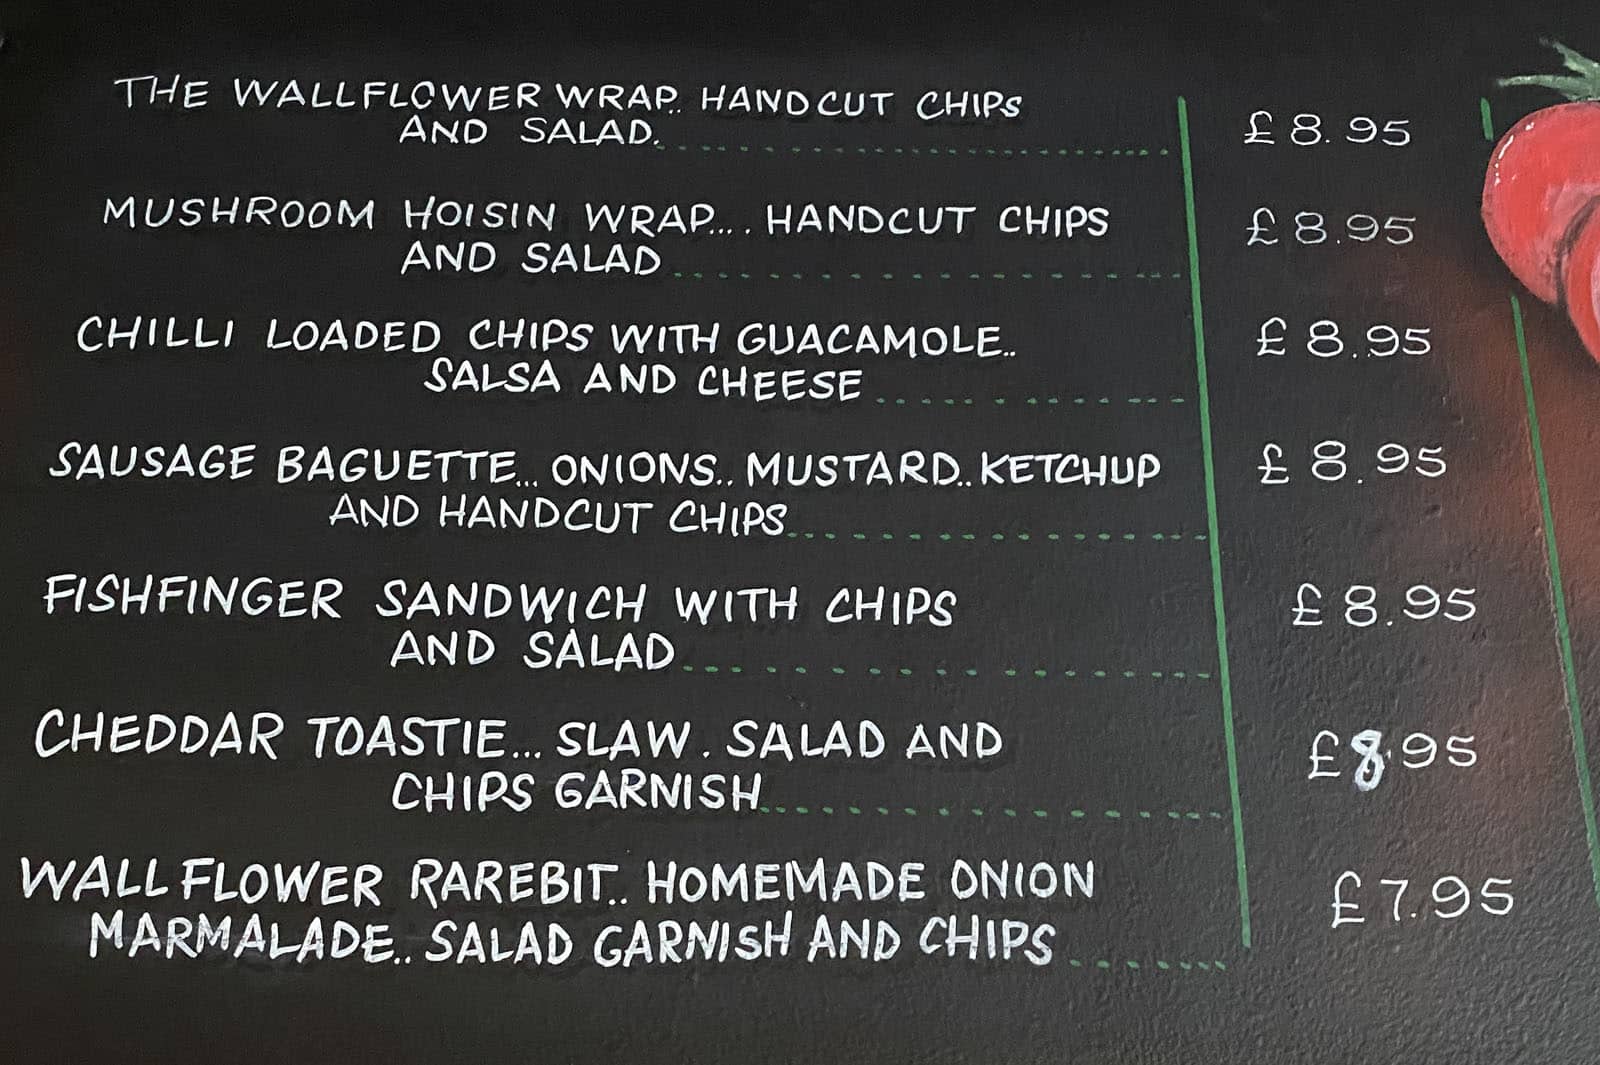 THE WALLFLOWER WRAP.. HANDCUT CHIPS
AND SALAD. £8.95
MUSHROOM HOISIN WRAP.... HANDCUT CHIPS £8.95
AND SALAD
CHILLI LOADED CHIPS WITH GUACAMOLE.. £8.95
SALSA AND CHEESE
SAUSAGE BAGUETTE... ONIONS.. MUSTARD.. KETCHUP £8.95
AND HANDCUT CHIPS
FISHFINGER SANDWICH WITH CHIPS £8.95
AND SALAD
CHEDDAR TOASTIE... SLAW. SALAD AND £8.95
CHIPS GARNISH
WALLFLOWER RAREBIT.. HOMEMADE ONION £7.95
MARMALADE.. SALAD GARNISH AND CHIPS